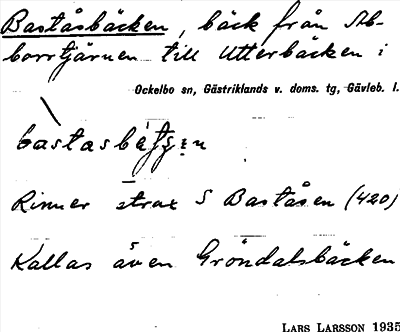 Baståsbäcken, bäck från Ab-
borrtjärnen till Utterbäcken i
Ockelbo sn, Gästriklands v. doms. tg, Gävleb. l.
Rinner strax S Baståsen (420)
Kallas även Gröndalsbäcken
LARS LARSSON 1935